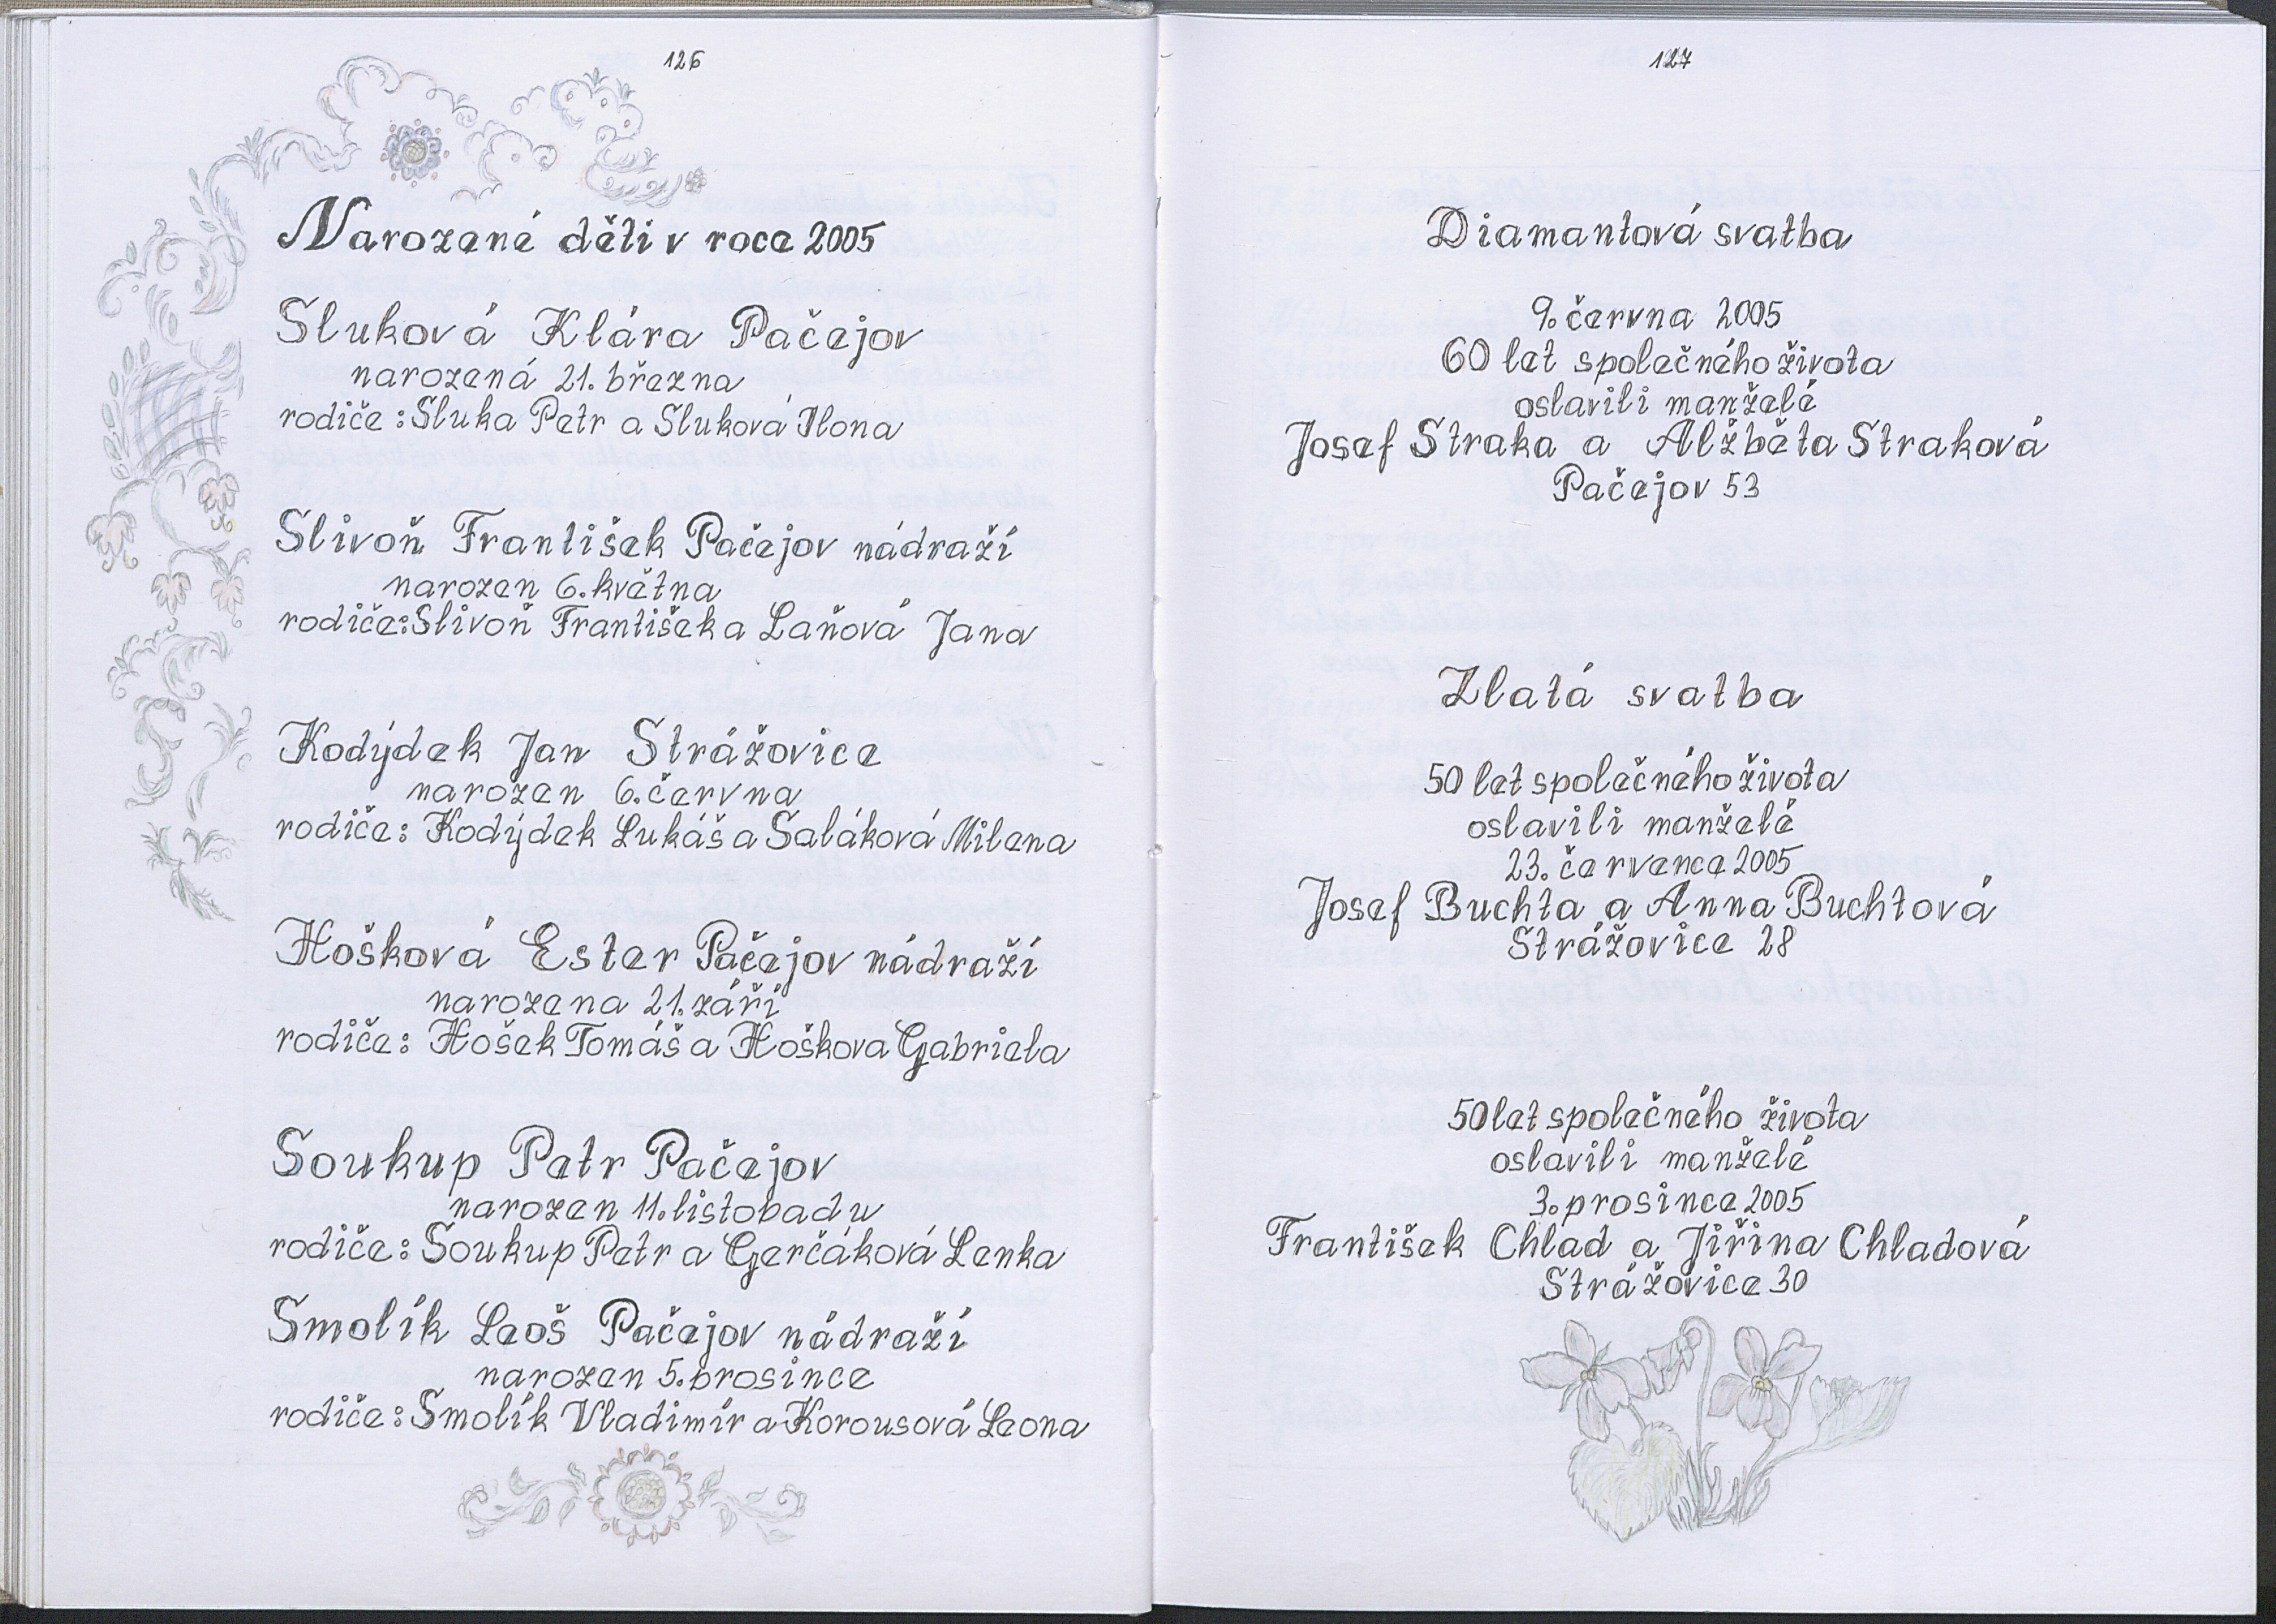 126
Narozené děti v roce 2005
Sluková Klára Pačejov
narozená 21. března
rodiče: Sluka Petr a Sluková Ilona
Slivoň František Pačejov nádraží
narozen 6. května
rodiče: Slivoň František a Laňová Jana
Kodýdek Jan Strážovice
narozen 6. června
rodiče: Kodýdek Lukáš a Saláková Milena
Hošková Ester Pačejov nádraží
narozena 21. září
rodiče: Hošek Tomáš a Hoškova Gabriela
Soukup Petr Pačejov
narozen 11. listopadu
rodiče: Soukup Petr a Gerčáková Lenka
Smolík Leoš Pačejov nádraží
narozen 5. prosince
rodiče: Smolík Vladimír a Korousová Leona
127
Diamantová svatba
9. června 2005
60 let společného života
oslavili manželé
Josef Straka a Alžběta Straková
Pačejov 53
Zlatá svatba
50 let společného života
oslavili manželé
23. července 2005
Josef Buchta a Anna Buchtová
Strážovice 28
50 let společného života
oslavili manželé
3. prosince 2005
František Chlad a Jiřina Chladová
Strážovice 30